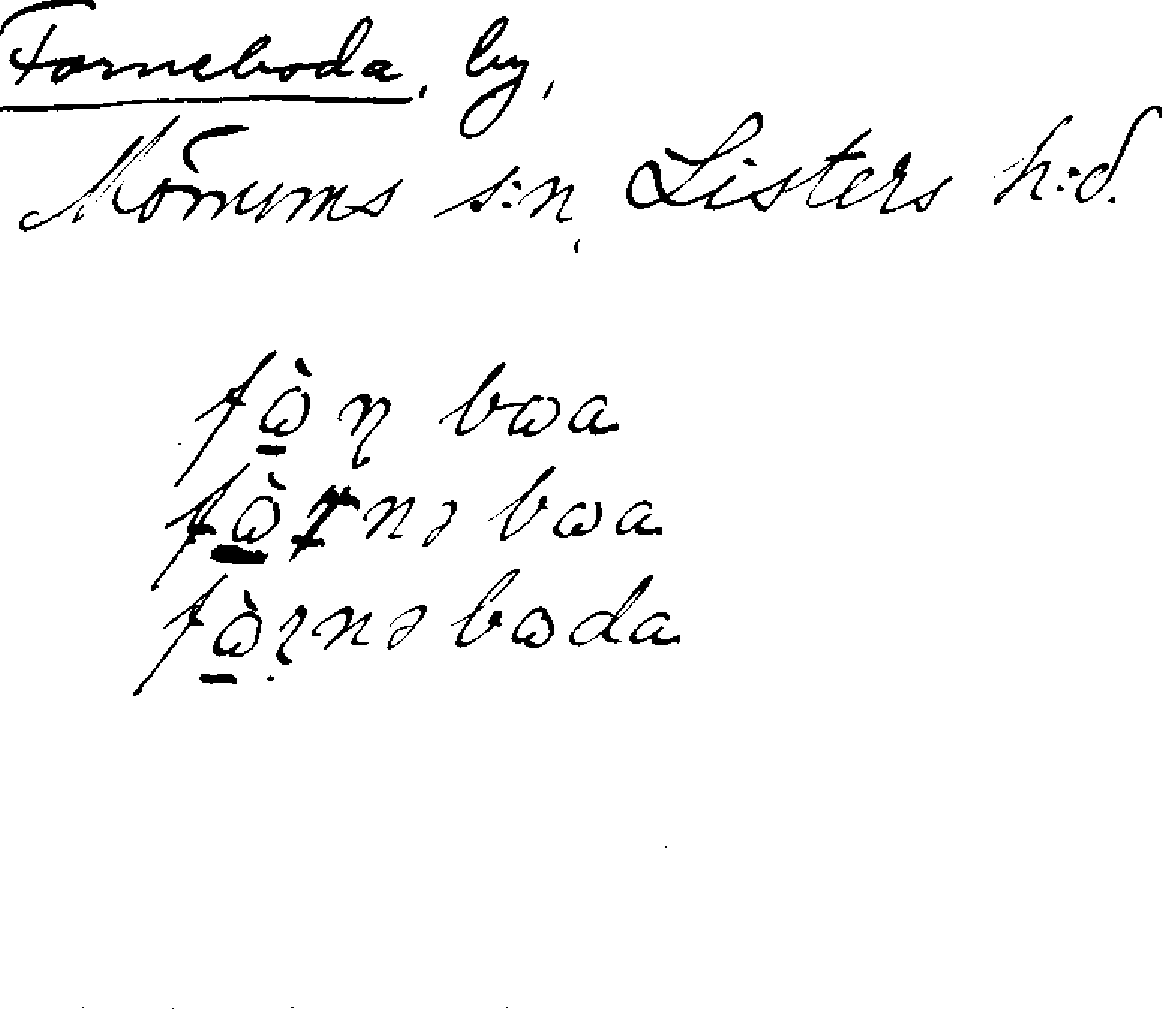 Forneboda, by,
Mörrums s:n, Listers h:d.
fὼ̠ɳ bωa
fὼ̠rnə bωa
fὼ̠rnə bωda